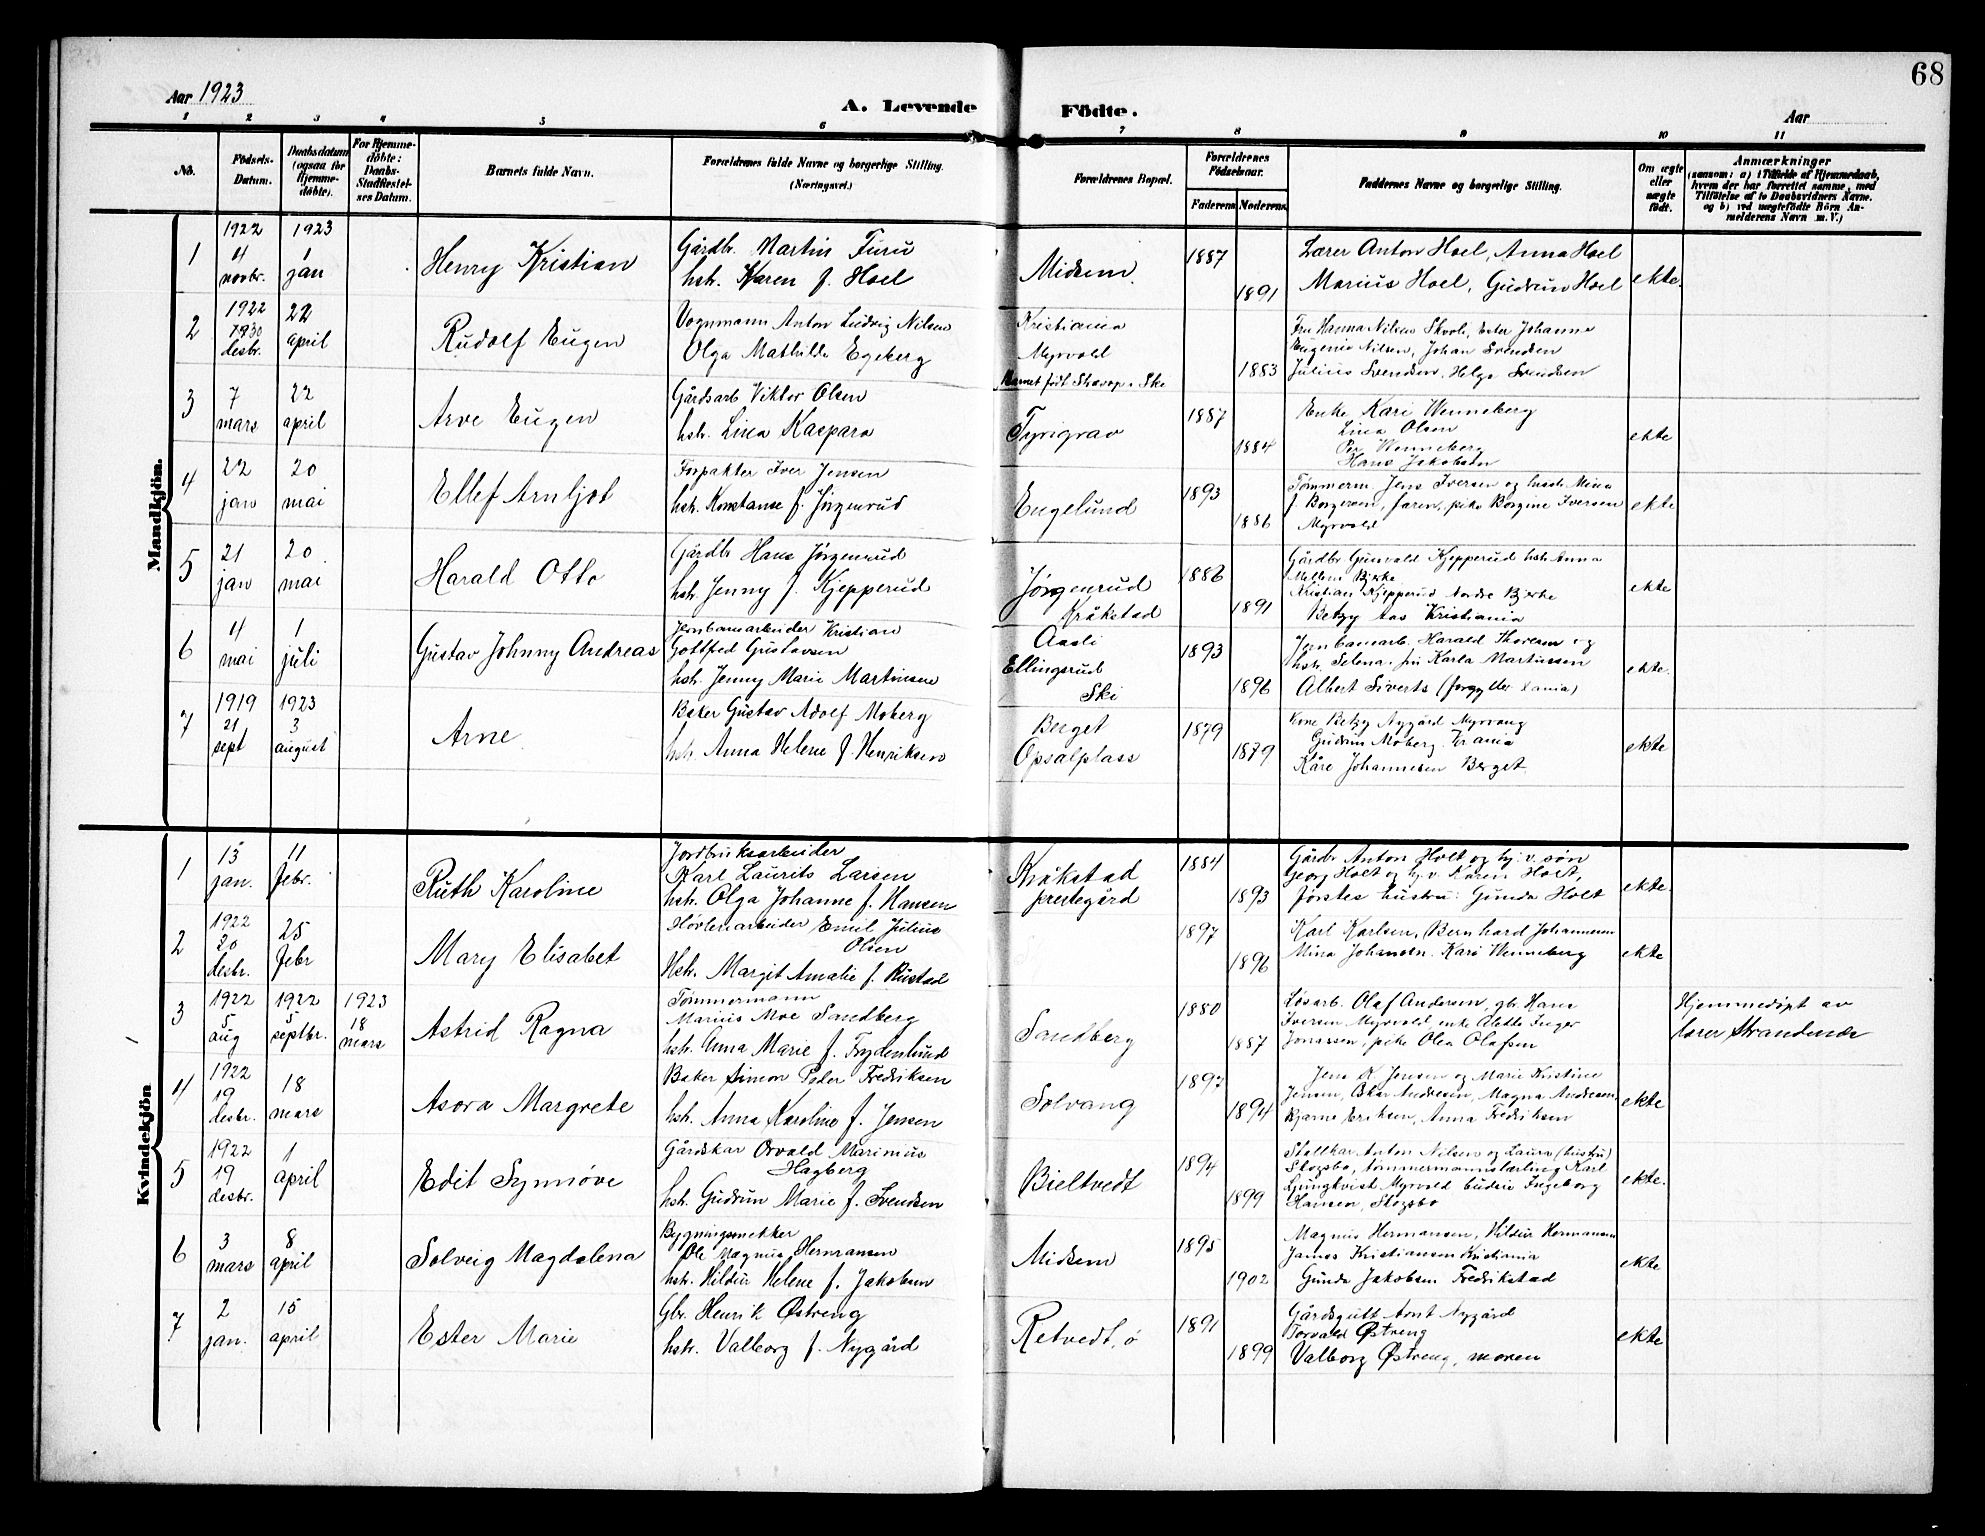 68
Aar 1923
A. Levende Födte.
Aar
1 2 3 4 5 6 7 8 9 10 11
No.
Födsels-Datum.
Daabsdatum (ogsaa for Hjemmedöbte).
For Hjemmedöbte: Daabs-Stadfæstelses Datum.
Barnets fulde Navn.
Forældrenes fulde Navne og borgerlige Stilling. (Næringsvei.)
Forældrenes Bopæl.
Forældrenes Födselsaar.
Faderens Moderens
Faddernes Navne og borgerlige Stilling.
Om ægte eller uægte født.
Anmærkninger
(saasom: a) i Tilfælde af Hjemmedaab, hvem der har forrettet samme, med Tilføielse af to Daabsvidners Navne. og b) ved uægtefødte Børn Anmelderens Navn m. V.)
Mandkjön.
1
1922 4 novbr.
1923 1 jan
Henry Kristian
Gårdbr. Martin Furu
hstr. Karen f. Hoel
Midsem.
1887
1891
Lærer Anton Hoel, Anna Hoel
Marius Hoel, Gudrun Hoel
ekte.
2
1922 30 desbr.
22 april
Rudolf Eugen
Vognmann Anton Ludvig Nilsen
Olga Mathilde Egeberg
Kristiania
Myrvold
Barnet født Ski
1883
Fru Hanna Nilsen Ester Johanne
Eugenie Nilsen, Johan Svendsen
Julius Svendsen, Helga Svendsen
3
7 mars
22 april
Arve Eugen
Gårdsarb Viktor Olsen
hstr. Lina Kaspara
Tyrigrav
1887
1884
Enke Kari Wenneberg
Lina Olsen
Per Wenneberg
Hans Jakobsen
ekte
4
22 jan
20 mai
Ellef Arnljot
Forpakter Iver Jensen
hstr. Konstanse f. Jørgenrud
Engelund
1893
1886
Tømmerm. Jens Iversen og hustr. Mina
f. Borgersen, pike Borgine Iversen
Myrvold
ekte
5
21 jan
20 mai
Harald Otto
Gårdbr Hans Jørgenrud
hstr. Jenny f. Kjepperud
Jørgenrud
Kråkstad
1886
1891
Gårdbr Gunvald Kjepperud hstr Anna
Mellem Bjerke
Kristian Kjepperud Nordre Bjerke
Betzy Aas Kristiania
ekte
6
4 mai
1 juli
Gustav Johnny Andreas
Jernbanearbeider Kristian
Gottfred Gustavsen
hstr. Jenny Marie Martinsen
Aasli
Ellingsrud
Ski
1893
1896
Jernbanearb. Harald Thoresen og
hstr. Selena, frk Karla Martinsen
Albert Siverts
ekte.
7
1919 21 sept
1923 3 august
Arne
Baker Gustav Adolf Moberg
hstr. Anna Helene f. Henriksen
Berget
Opsalplass
1879
1879
Kone Betzy Nygård Myrvang
Gudrun Moberg. Krania
Kåre Johannesen Berget
ekte
Kvindekjön
1
13 jan.
11 febr.
Ruth Karoline
Jordbruksarbeider
Karl Laurits Larsen
hstr. Olga Johanne f. Hansen
Kråkstad
prestegård
1884
1893
Gårdbr Anton Holt og hj. v. søn
Georg Holt og hj. v. Karen Holt,
Førstes hustru: Gunda Holt
ekte.
2
1922 20 desbr.
25 febr
Mary Elisabet
Høvleriarbeider Emil Julius
Olsen
Hstr. Margit Amalie f. Rustad
1897
1896
Karl Karlsen, Bernhard Johannesen
Mina Johansen. Kari Wenneberg
ekte
3
1922 5 aug
1922 5 septbr.
1923 18 mars
Astrid Ragna
Tømmermann
Marius Moe Sandberg
hstr. Anna Marie f. Frydenlund
Sandberg
1880
1887
Løsarb. Olaf Andersen, gbr Hans
Iversen Myrvold, enke Alette Inger
Jonassen, pike Olea Olafsen
Hjemmedøpt av
lærer Strandenæs
4
1922 19 desbr.
18 mars
Asora Margrete
Baker Simon Peder Fredriksen
hstr. Anna Karoline f. Jensen
Solvang
1897
1894
Jens K. Jensen og Marie Kristine
Jensen, Oskar Andresen, Magna Andresen,
Bjarne Eriksen, Anna Fredriksen
ekte
5
1922 19 desbr.
1 april
Edit Synnøve
Gårdskar Osvald Marinius
Hagberg
hstr. Gudrun Marie f. Svendsen
Bieltvedt
1894
1899
Stallkar Anton Nilsen og Laura (hustru)
Skogsbo, tømmermannslærling Karl
Ljungkvist Myrvold budeie Ingeborg
Hansen, Skogsbo
ekte.
6
3 mars
8 april
Solveig Magdalena
Bygningssnekker
Ole Magnus Hermansen
hstr. Hildur Helene f. Jakobsen
Midsem
1895
1902
Magnus Hermansen, Hildur Hermansen
James Kristiansen Kristiania
Gunda Jakobsen Fredrikstad
ekte
7
2 jan.
15 april
Ester Marie
Gbr. Henrik Østreng
hstr. Valborg f. Nygård
Retvedt, ø
1891
1899
Gårdsgutt Arnt Nygård
Torvald Østreng
Valborg Østreng, moren
ekte